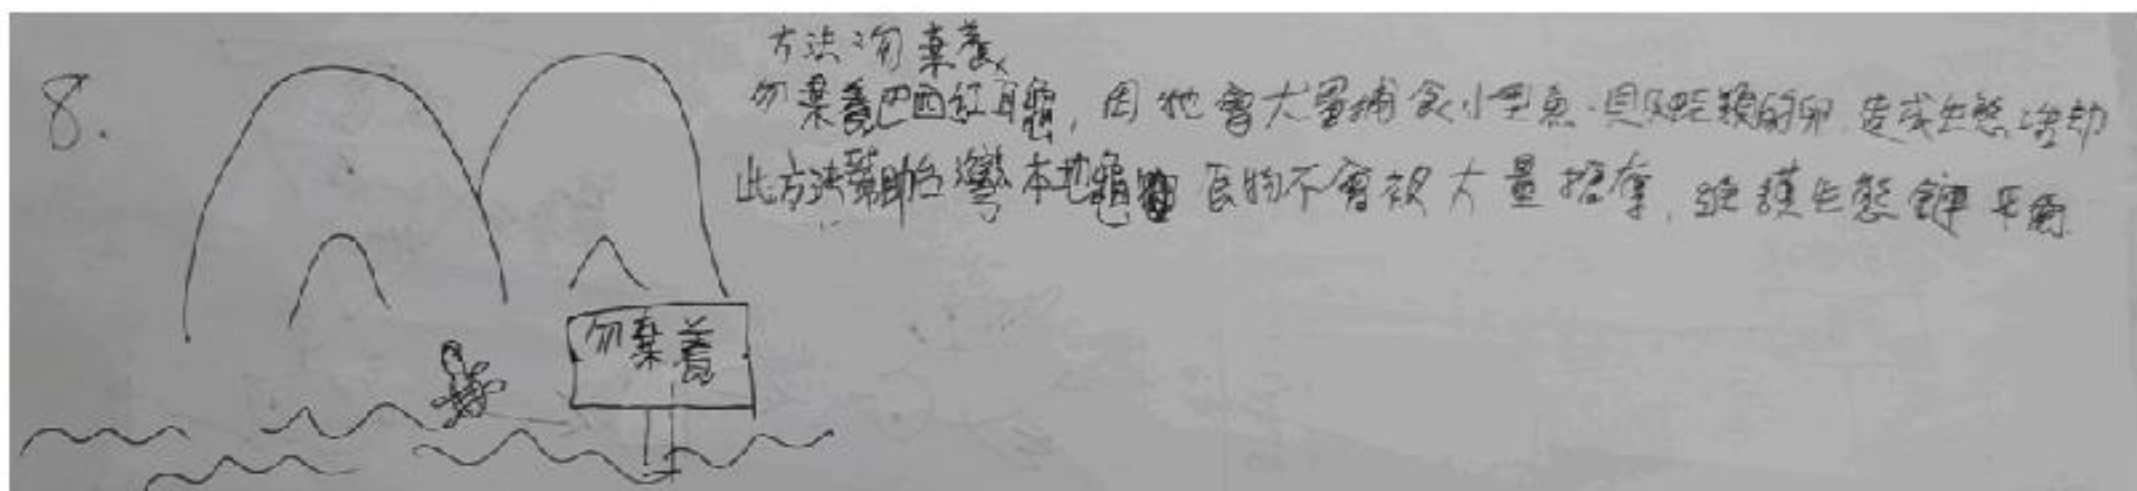 8.
方法:勿棄養
勿棄養巴西紅耳龜,因牠會大量捕食小型魚、貝及蛙類的卵 造成生態
此方法幫助台灣本地龜 食物不會被大量搶奪,維護生態鏈平衡
勿棄養